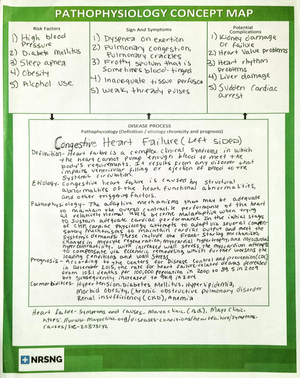 PATHOPHYSIOLOGY CONCEPT MAP
Risk Factors
1) High blood
Pressure
2) Diabetes Mellitus
3) Sleep apnea
4) Obesity
5) Alcohol use
Sign And Symptoms
1) Dyspnea on exertion
2) Pulmonary congestion,
Pulmonary crackles
3) Frothy sputum that is
sometimes blood-tinged
4) Inadequate tissue perfusion
5) Weak, thready pulses
Potential
Complications
1) Kidney damage
or failure
2) Heart Valve problems
3) Heart rhythm
problems
4) Liver damage
5) Sudden cardiac
arrest
DISEASE PROCESS
Pathophysiology (Definition / etiology chronicity and prognosis)
Congestive Heart Failure (Left sided)
Definition- Heart failure is a complex clinical syndrome in which
the heart cannot pump enough blood to meet the
body's requirements. It results from any disorder that
impairs ventricular filling or ejection of blood to the
systemic circulation.
Etiology- Congestive heart failure is caused by structural
abnormalities of the heart, functional abnormalities,
and other triggering factors.
Pathophysiology- The adaptive mechanisms that may be adequate
to maintain the overall contractile performance of the heart
at relatively normal levels become maladaptive when trying
to sustain adequate cardiac performance. In the initial stage
of CHF, cardiac physiology attempts to adapt via
mechanisms to maintain cardiac output and meet the
systemic demands. These include
changes in myocyte regeneration, myocardial hypertrophy and myocardial
hypercontractility. With increased wall stress, the myocardium attempts
to compensate via eccentric remodeling which further worsens the
loading conditions and wall stress.
Prognosis- According to the Centers for Disease control and prevention (CDC)
in December 2015, the rate of heart failure-related deaths decreased
from 103.1 deaths per 100,000 population in 2000 to 89.5 in 2009
but subsequently increased to 96.9 in 2014
Comorbidities- Hypertension, Diabetes Mellitus, Hyperlipidemia,
Morbid obesity, Chronic obstructive pulmonary disorder
Renal insufficiency (CKD), Anemia
Heart failure- Symptoms and causes. Mayo Clinic. (n.d.). Mayo Clinic.
NRSNG